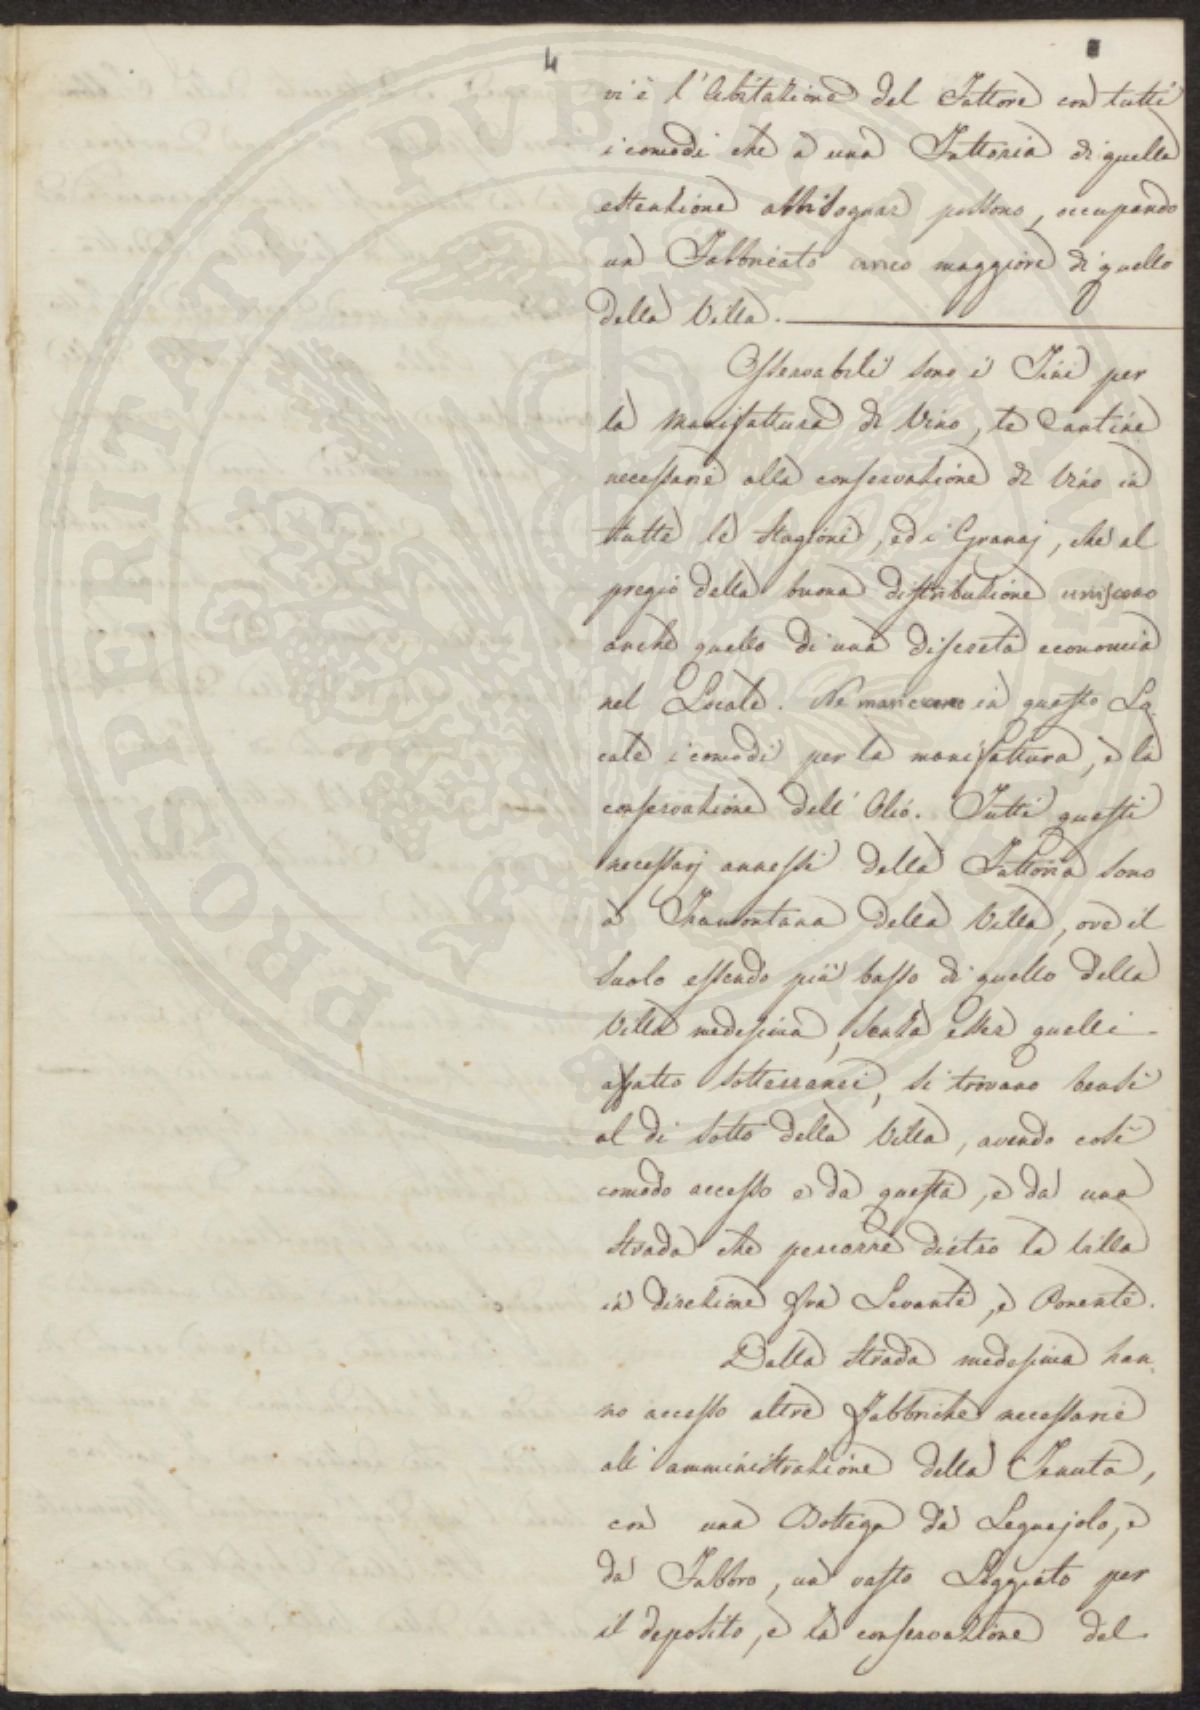 4
vi è l'Abitazione del Fattore con tutti
i comodi che a una Fattoria di quella
estenzione abbisognar possono, occupando
un Fabbricato anco maggiore di quello
della Villa.
Osservabili sono i Tini per
la manifattura di Vino, le Cantine
necessarie alla conservazione di Vino in
tutte le Stagioni, ed i Granaj, che al
pregio della buona distribuzione uniscono
anche quello di una discreta economia
nel Locale. Ne mancano in questo Lo,
cale i comodi per la manifattura, e la
conservazione dell'Olio. Tutti questi
necessarj annessi della Fattoria sono
a Tramontana della Villa, ove il
suolo essendo più basso di quello della
Villa medesima, senza esser quelli
affatto sotterranei, si trovano bensì
al di sotto della Villa, avendo così
comodo accesso e da questa, e da una
strada che percorre dietro la Villa
in direzione fra Levante, e Ponente.
Dalla Strada medesima han,
no accesso altre Fabbriche necessarie
all'amministrazione della Tenuta,
con una Bottega da Legnajolo, e
da Fabbro, un vasto Loggiato per
il deposito, e la conservazione del
PROSPERITATI PUBLICAE